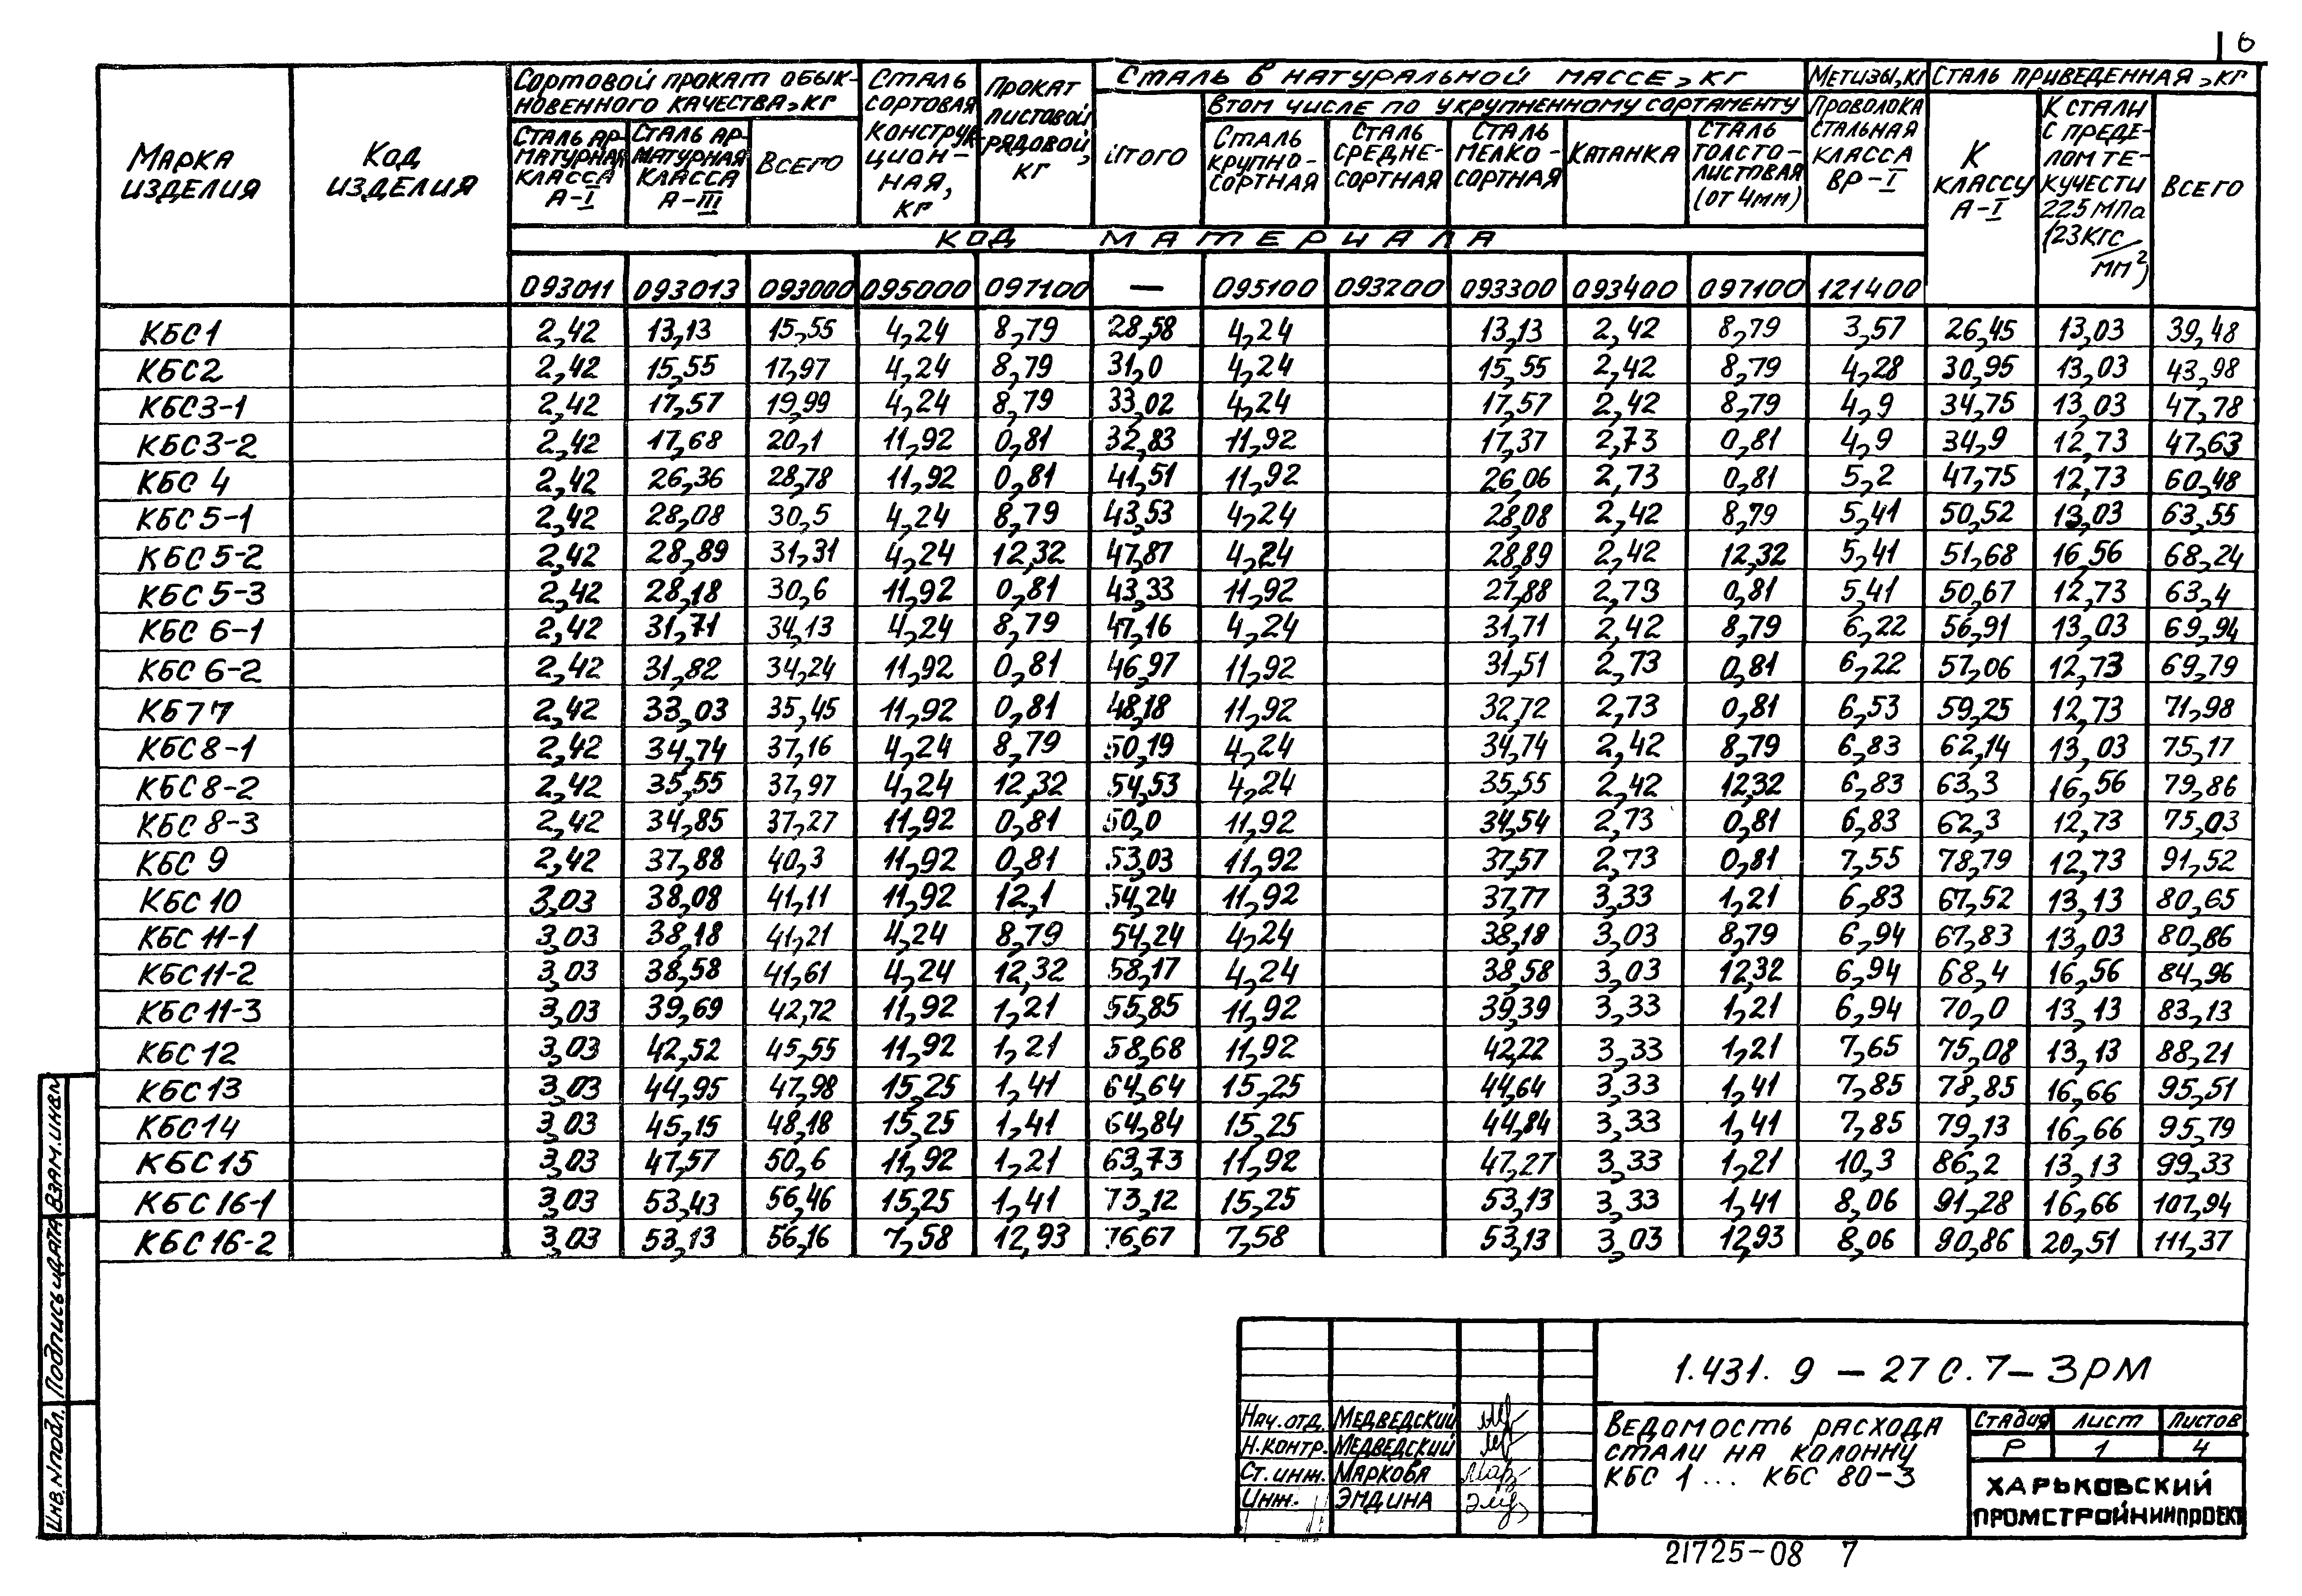 6
Марка изделия | Код изделия | Сортовой прокат обыкновенного качества, кг | Сталь сортовая конструкционная, кг | Прокат листовой рядовой, кг | Сталь в натуральной массе, кг | Метизы, кг | Сталь приведенная, кг
Сталь арматурная класса А-I | Сталь арматурная класса А-III | Всего | Итого | В том числе по укрупненному сортаменту | Проволока стальная класса ВР-I | К классу А-I | К стали с пределом текучести 225 МПа (23 кгс/мм²) | Всего
Сталь крупносортная | Сталь среднесортная | Сталь мелкосортная | Катанка | Сталь толстолистовая (от 4мм)
Код материала
093011 093013 093000 095000 097100 — 095100 093200 093300 093400 097100 121400
КБС1 2,42 13,13 15,55 4,24 8,79 28,58 4,24 13,13 2,42 8,79 3,57 26,45 13,03 39,48
КБС2 2,42 15,55 17,97 4,24 8,79 31,0 4,24 15,55 2,42 8,79 4,28 30,95 13,03 43,98
КБС3-1 2,42 17,57 19,99 4,24 8,79 33,02 4,24 17,57 2,42 8,79 4,9 34,75 13,03 47,78
КБС3-2 2,42 17,68 20,1 11,92 0,81 32,83 11,92 17,37 2,73 0,81 4,9 34,9 12,73 47,63
КБС 4 2,42 26,36 28,78 11,92 0,81 41,51 11,92 26,06 2,73 0,81 5,2 47,75 12,73 60,48
КБС 5-1 2,42 28,08 30,5 4,24 8,79 43,53 4,24 28,08 2,42 8,79 5,41 50,52 13,03 63,55
КБС 5-2 2,42 28,89 31,31 4,24 12,32 47,87 4,24 28,89 2,42 12,32 5,41 51,68 16,56 68,24
КБС 5-3 2,42 28,18 30,6 11,92 0,81 43,33 11,92 27,88 2,73 0,81 5,41 50,67 12,73 63,4
КБС 6-1 2,42 31,71 34,13 4,24 8,79 47,16 4,24 31,71 2,42 8,79 6,22 56,91 13,03 69,94
КБС 6-2 2,42 31,82 34,24 11,92 0,81 46,97 11,92 31,51 2,73 0,81 6,22 57,06 12,73 69,79
КБ77 2,42 33,03 35,45 11,92 0,81 48,18 11,92 32,72 2,73 0,81 6,53 59,25 12,73 71,98
КБС8-1 2,42 34,74 37,16 4,24 8,79 50,19 4,24 34,74 2,42 8,79 6,83 62,14 13,03 75,17
КБС8-2 2,42 35,55 37,97 4,24 12,32 54,53 4,24 35,55 2,42 12,32 6,83 63,3 16,56 79,86
КБС 8-3 2,42 34,85 37,27 11,92 0,81 50,0 11,92 34,54 2,73 0,81 6,83 62,3 12,73 75,03
КБС 9 2,42 37,88 40,3 11,92 0,81 53,03 11,92 37,57 2,73 0,81 7,55 78,79 12,73 91,52
КБС 10 3,03 38,08 41,11 11,92 12,1 54,24 11,92 37,77 3,33 1,21 6,83 67,52 13,13 80,65
КБС 11-1 3,03 38,18 41,21 4,24 8,79 54,24 4,24 38,18 3,03 8,79 6,94 67,83 13,03 80,86
КБС11-2 3,03 38,58 41,61 4,24 12,32 58,17 4,24 38,58 3,03 12,32 6,94 68,4 16,56 84,96
КБС11-3 3,03 39,69 42,72 11,92 1,21 55,85 11,92 39,39 3,33 1,21 6,94 70,0 13,13 83,13
КБС12 3,03 42,52 45,55 11,92 1,21 58,68 11,92 42,22 3,33 1,21 7,65 75,08 13,13 88,21
КБС13 3,03 44,95 47,98 15,25 1,41 64,64 15,25 44,64 3,33 1,41 7,85 78,85 16,66 95,51
КБС14 3,03 45,15 48,18 15,25 1,41 64,84 15,25 44,84 3,33 1,41 7,85 79,13 16,66 95,79
КБС15 3,03 47,57 50,6 11,92 1,21 63,73 11,92 47,27 3,33 1,21 10,3 86,2 13,13 99,33
КБС 16-1 3,03 53,43 56,46 15,25 1,41 73,12 15,25 53,13 3,33 1,41 8,06 91,28 16,66 107,94
КБС 16-2 3,03 53,13 56,16 7,58 12,93 76,67 7,58 53,13 3,03 12,93 8,06 90,86 20,51 111,37
Инв. N подл. Подпись и дата Взам. инв. N
1.431.9 – 27 С.7 – 3РМ
Нач. отд. Медведский
Н. контр. Медведский
Ст. инж. Маркова
Инж. Эмдина
Ведомость расхода
стали на колонну
КБС 1 ... КБС 80-3
Стадия Лист Листов
Р 1 4
Харьковский
Промстройниипроект
21725-08 7